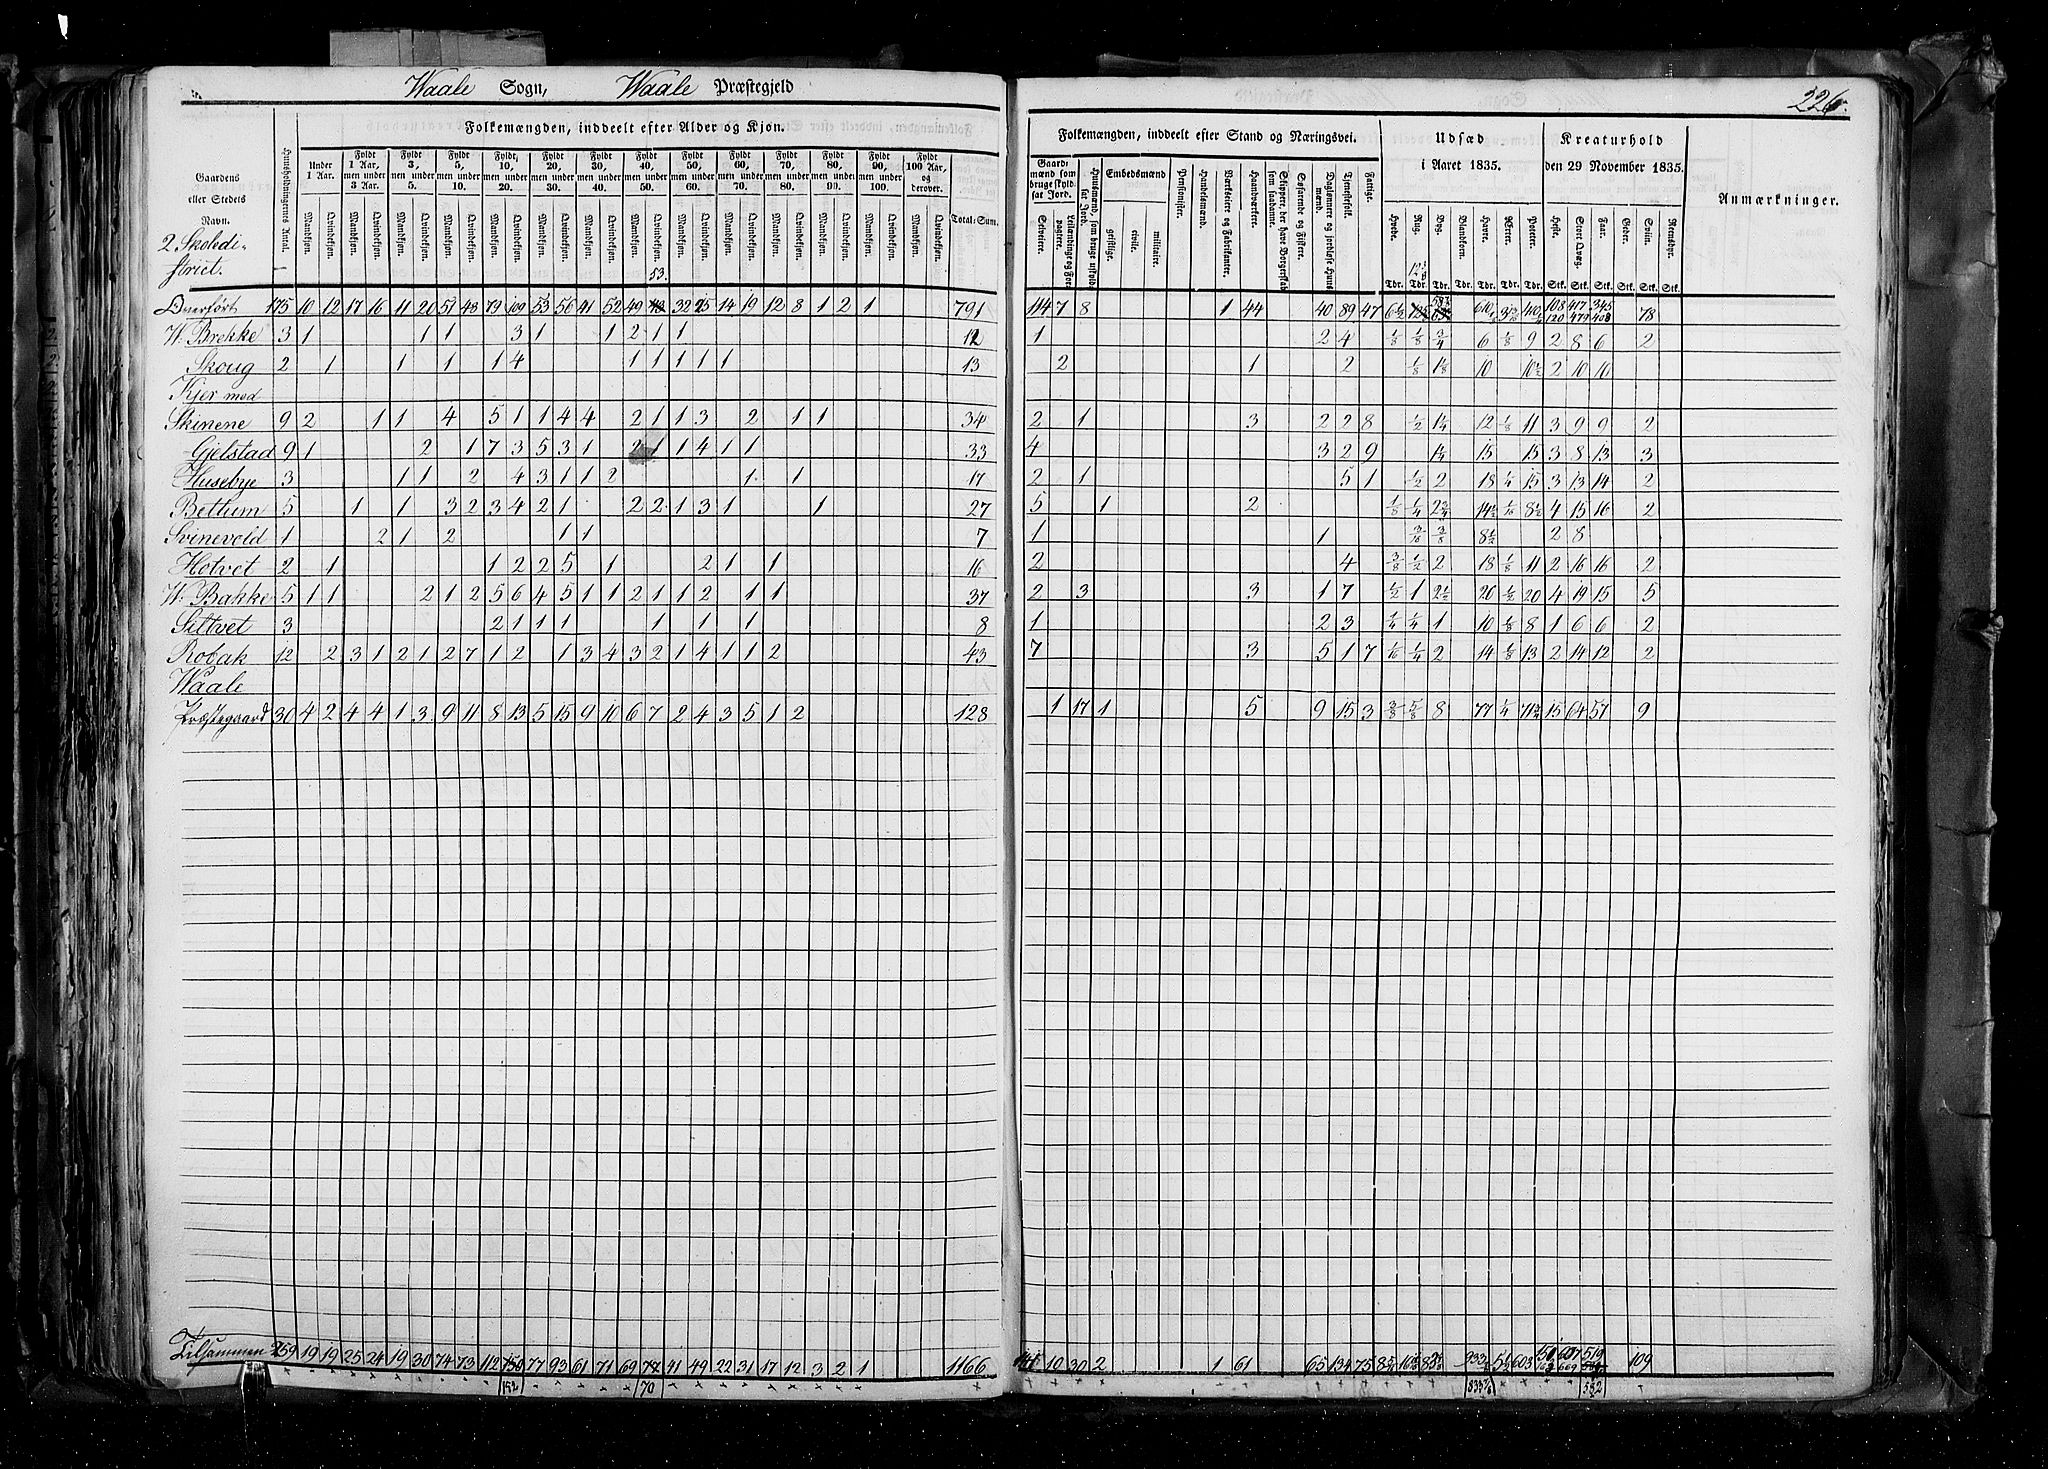 Waale Sogn, Waale Præstegjeld
226.
Folkemængden, inddeelt efter Alder og Kjøn.
Folkemængden, inddeelt efter Stand og Næringsvei.
Udsæd i Aaret 1835.
Kreaturhold den 29 November 1835.
Anmærkninger.
Gaardens eller Stedets Navn.
Huusholdningernes Antal.
Under 1 Aar. Fyldt 1 Aar, men under 3 Aar. Fyldt 3, men under 5. Fyldt 5, men under 10. Fyldt 10, men under 20. Fyldt 20, men under 30. Fyldt 30, men under 40. Fyldt 40, men under 50. Fyldt 50, men under 60. Fyldt 60, men under 70. Fyldt 70, men under 80. Fyldt 80, men under 90. Fyldt 90, men under 100. Fyldt 100 Aar, og derover.
Mandkjøn. Qvindekjøn.
Total-Sum.
Gaardmænd som bruge skyldsat Jord. Selveiere. Leilændinge og Forpagtere.
Huusmænd, som bruge uskyldsat Jord.
Embedsmænd geistlige. civile. militaire.
Pensionister. Handelsmænd. Værkseiere og Fabrikanter. Haandværkere. Skippere, der have Borgerskab som saadanne. Søfarende og Fiskere. Daglønnere og jordløse Huusmænd. Tjenestefolk. Fattige.
Hvede. Rug. Byg. Blandkorn. Havre. Erter. Poteter. Heste. Stort Qvæg. Faar. Geder. Sviin. Rensdyr.
Tdr. Tdr. Tdr. Tdr. Tdr. Tdr. Tdr. Stk. Stk. Stk. Stk. Stk. Stk.
2 Skoledistrict.
53.
Overført 175 10 12 17 16 11 20 51 48 79 109 53 56 41 52 49 32 25 14 19 12 8 1 2 1 791 114 7 8 1 44 40 89 47 6½ 78
W. Brekke 3 1 1 1 3 1 1 2 1 1 12 1 2 4 ⅛ ⅛ ¾ 6 ⅛ 9 2 8 6 2
Skoug 2 1 1 1 1 4 1 1 1 1 1 13 2 1 2 ⅛ 1⅛ 10 10½ 2 10 10
Kjer med
Skinene 9 2 1 1 4 5 1 1 4 4 2 1 1 3 2 1 1 34 2 1 3 2 2 8 ½ 1¼ 12 ⅛ 11 3 9 9 2
Gjelstad 9 1 2 1 7 3 5 3 1 2 1 1 4 1 1 33 4 3 2 9 1¼ 15 15 3 8 13 3
Husebye 3 1 1 2 4 3 1 1 2 1 1 17 2 1 5 1 ½ 2 18 ¼ 15 3 13 14 2
Bettum 5 1 1 3 2 3 4 2 1 2 2 1 3 1 1 27 5 1 2 ⅛ ¼ 2¾ 14½ 1/16 8½ 4 15 16 2
Svinevold 1 2 1 2 1 1 7 1 1 3/16 ⅜ 8½ 2 8
Hotvet 2 1 1 2 2 5 1 2 1 1 16 2 4 ⅜ ½ 2 18 ⅛ 11 2 16 16 2
W. Bakke 5 1 1 2 1 2 5 6 4 5 1 1 2 1 1 2 1 1 37 2 3 3 1 7 ½ 1 2½ 20 ½ 20 4 19 15 5
Siltvet 3 2 1 1 1 1 1 1 8 1 2 3 ¼ ¼ 1 10 ⅛ 8 1 6 6 2
Robak 12 2 3 1 2 1 2 7 1 2 1 3 4 3 2 1 4 1 1 2 43 7 3 5 1 7 1/16 ¼ 2 14 ⅛ 13 2 14 12 2
Waale
Præstegaard 30 4 2 4 4 1 3 9 11 8 13 5 15 9 10 6 7 2 4 3 5 1 2 128 1 17 1 5 9 15 3 ⅜ ⅝ 8 77 ¼ 71¾ 15 64 57 9
Tilsammen 259 19 19 25 24 19 30 74 73 112 77 93 61 71 69 41 49 22 31 17 12 3 2 1 1166 141 10 30 2 1 61 65 134 75 109
152 70 582